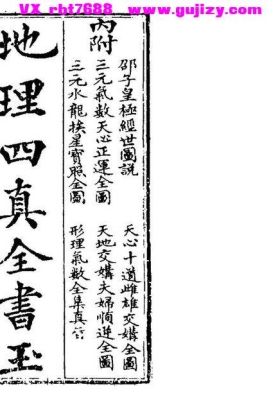 VX rbt7688 www.gujizy.com
內附
邵子皇極經世圖說
三元氣數天心正運全圖
三元水龍挨星寶照全圖
天心十道雌雄交媾全圖
天地交媾夫婦順逆全圖
形理氣數全集真
地理四真全書